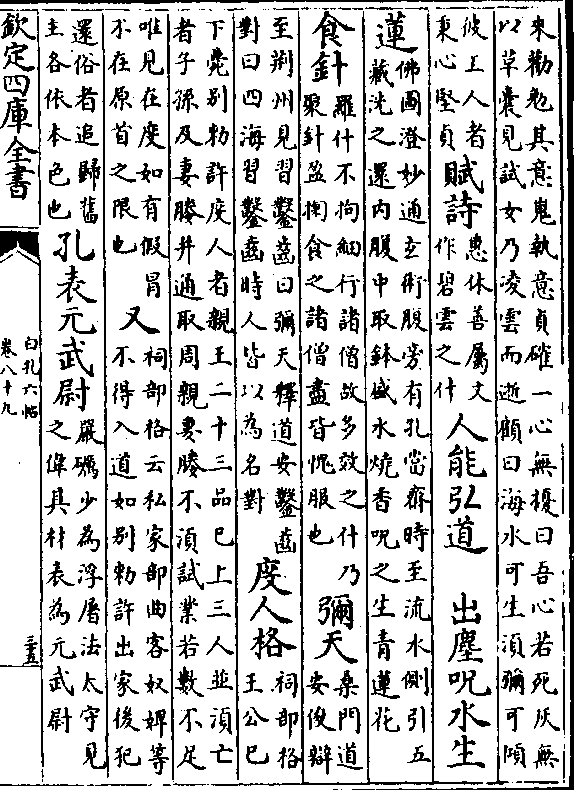 來勸勉其意鬼執意貞確一心無擾曰吾心若死灰無
以草囊見試女乃凌雲而逝顧曰海水可生須彌可傾
彼上人者
秉心堅貞
賦詩
惠休善屬文
作碧雲之什
人能弘道 出塵 呪水生
蓮
佛圖澄妙通玄術腹旁有孔當齋時至流水側引五
藏洗之還内腹中取鉢盛水燒香呪之生青蓮花
食針
羅什不拘細行諸僧故多效之什乃
聚針盈掬食之諸僧盡皆愧服也
彌天
桑門道
安俊辯
至荆州見習鑿齒曰彌天釋道安鑿齒
對曰四海習鑿齒時人皆以為名對
度人格
祠部格
王公已
下薨别勅許度人者親王二十三品已上三人並須亡
者子孫及妻媵并通取周親妻媵不須試業若數不足
唯見在度如有假冒
不在原首之限也
又
祠部格云私家部曲客奴婢等
不得入道如别勅許出家後犯
還俗者追歸舊
主各依本色也
孔表元武尉
嚴礪少為浮屠法太守見
之偉其材表為元武尉
欽定四庫全書
白孔六帖
卷八十九
三五